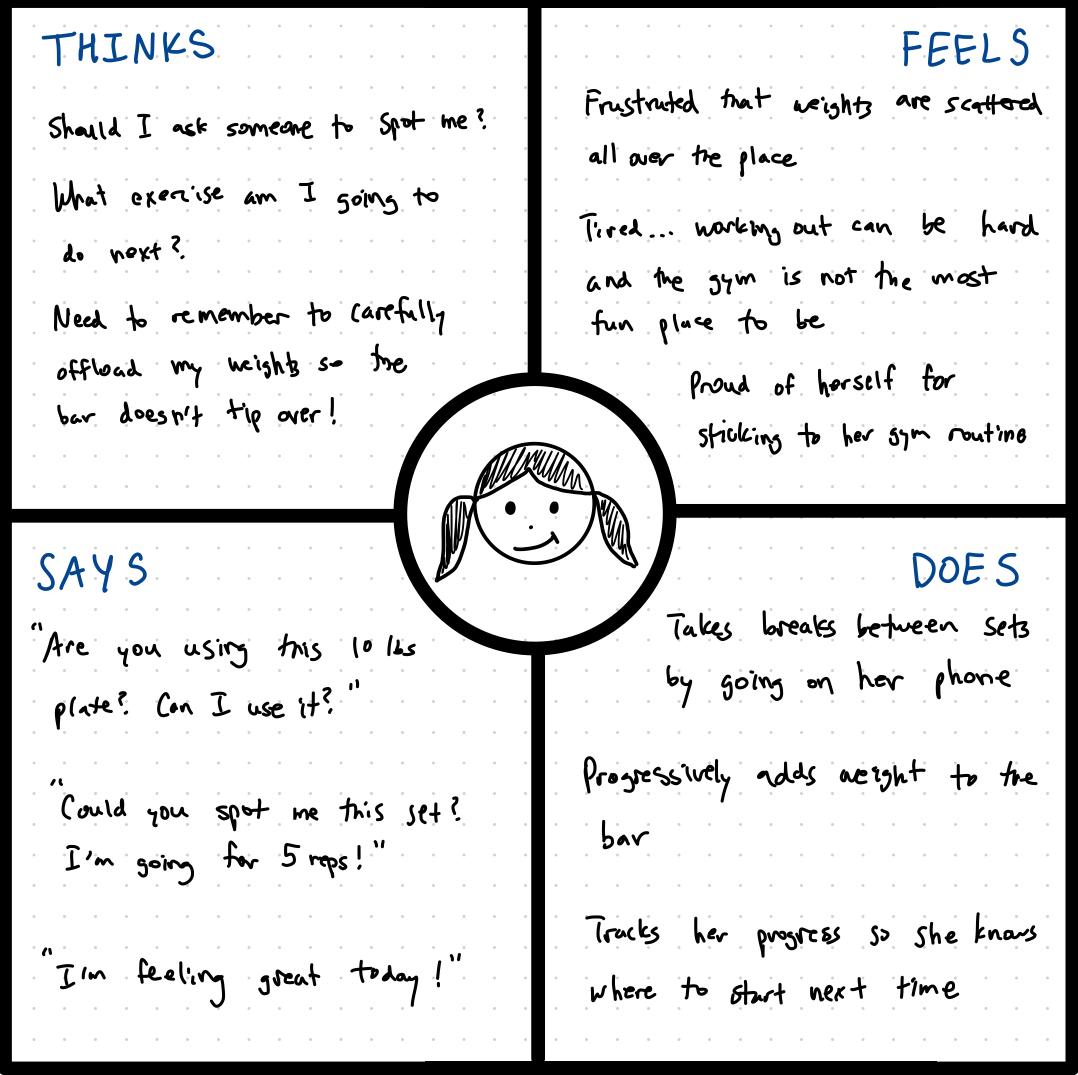 THINKS
Should I ask someone to spot me?
What exercise am I going to
do next?
Need to remember to carefully
offload my weights so the
bar doesn't tip over!
FEELS
Frustrated that weights are scattered
all over the place
Tired... working out can be hard
and the gym is not the most
fun place to be
Proud of herself for
sticking to her gym routine
SAYS
"Are you using this 10 lbs
plate? Can I use it?"
"Could you spot me this set?
I'm going for 5 reps!"
"I'm feeling great today!"
DOES
Takes breaks between sets
by going on her phone
Progressively adds weight to the
bar
Tracks her progress so she knows
where to start next time